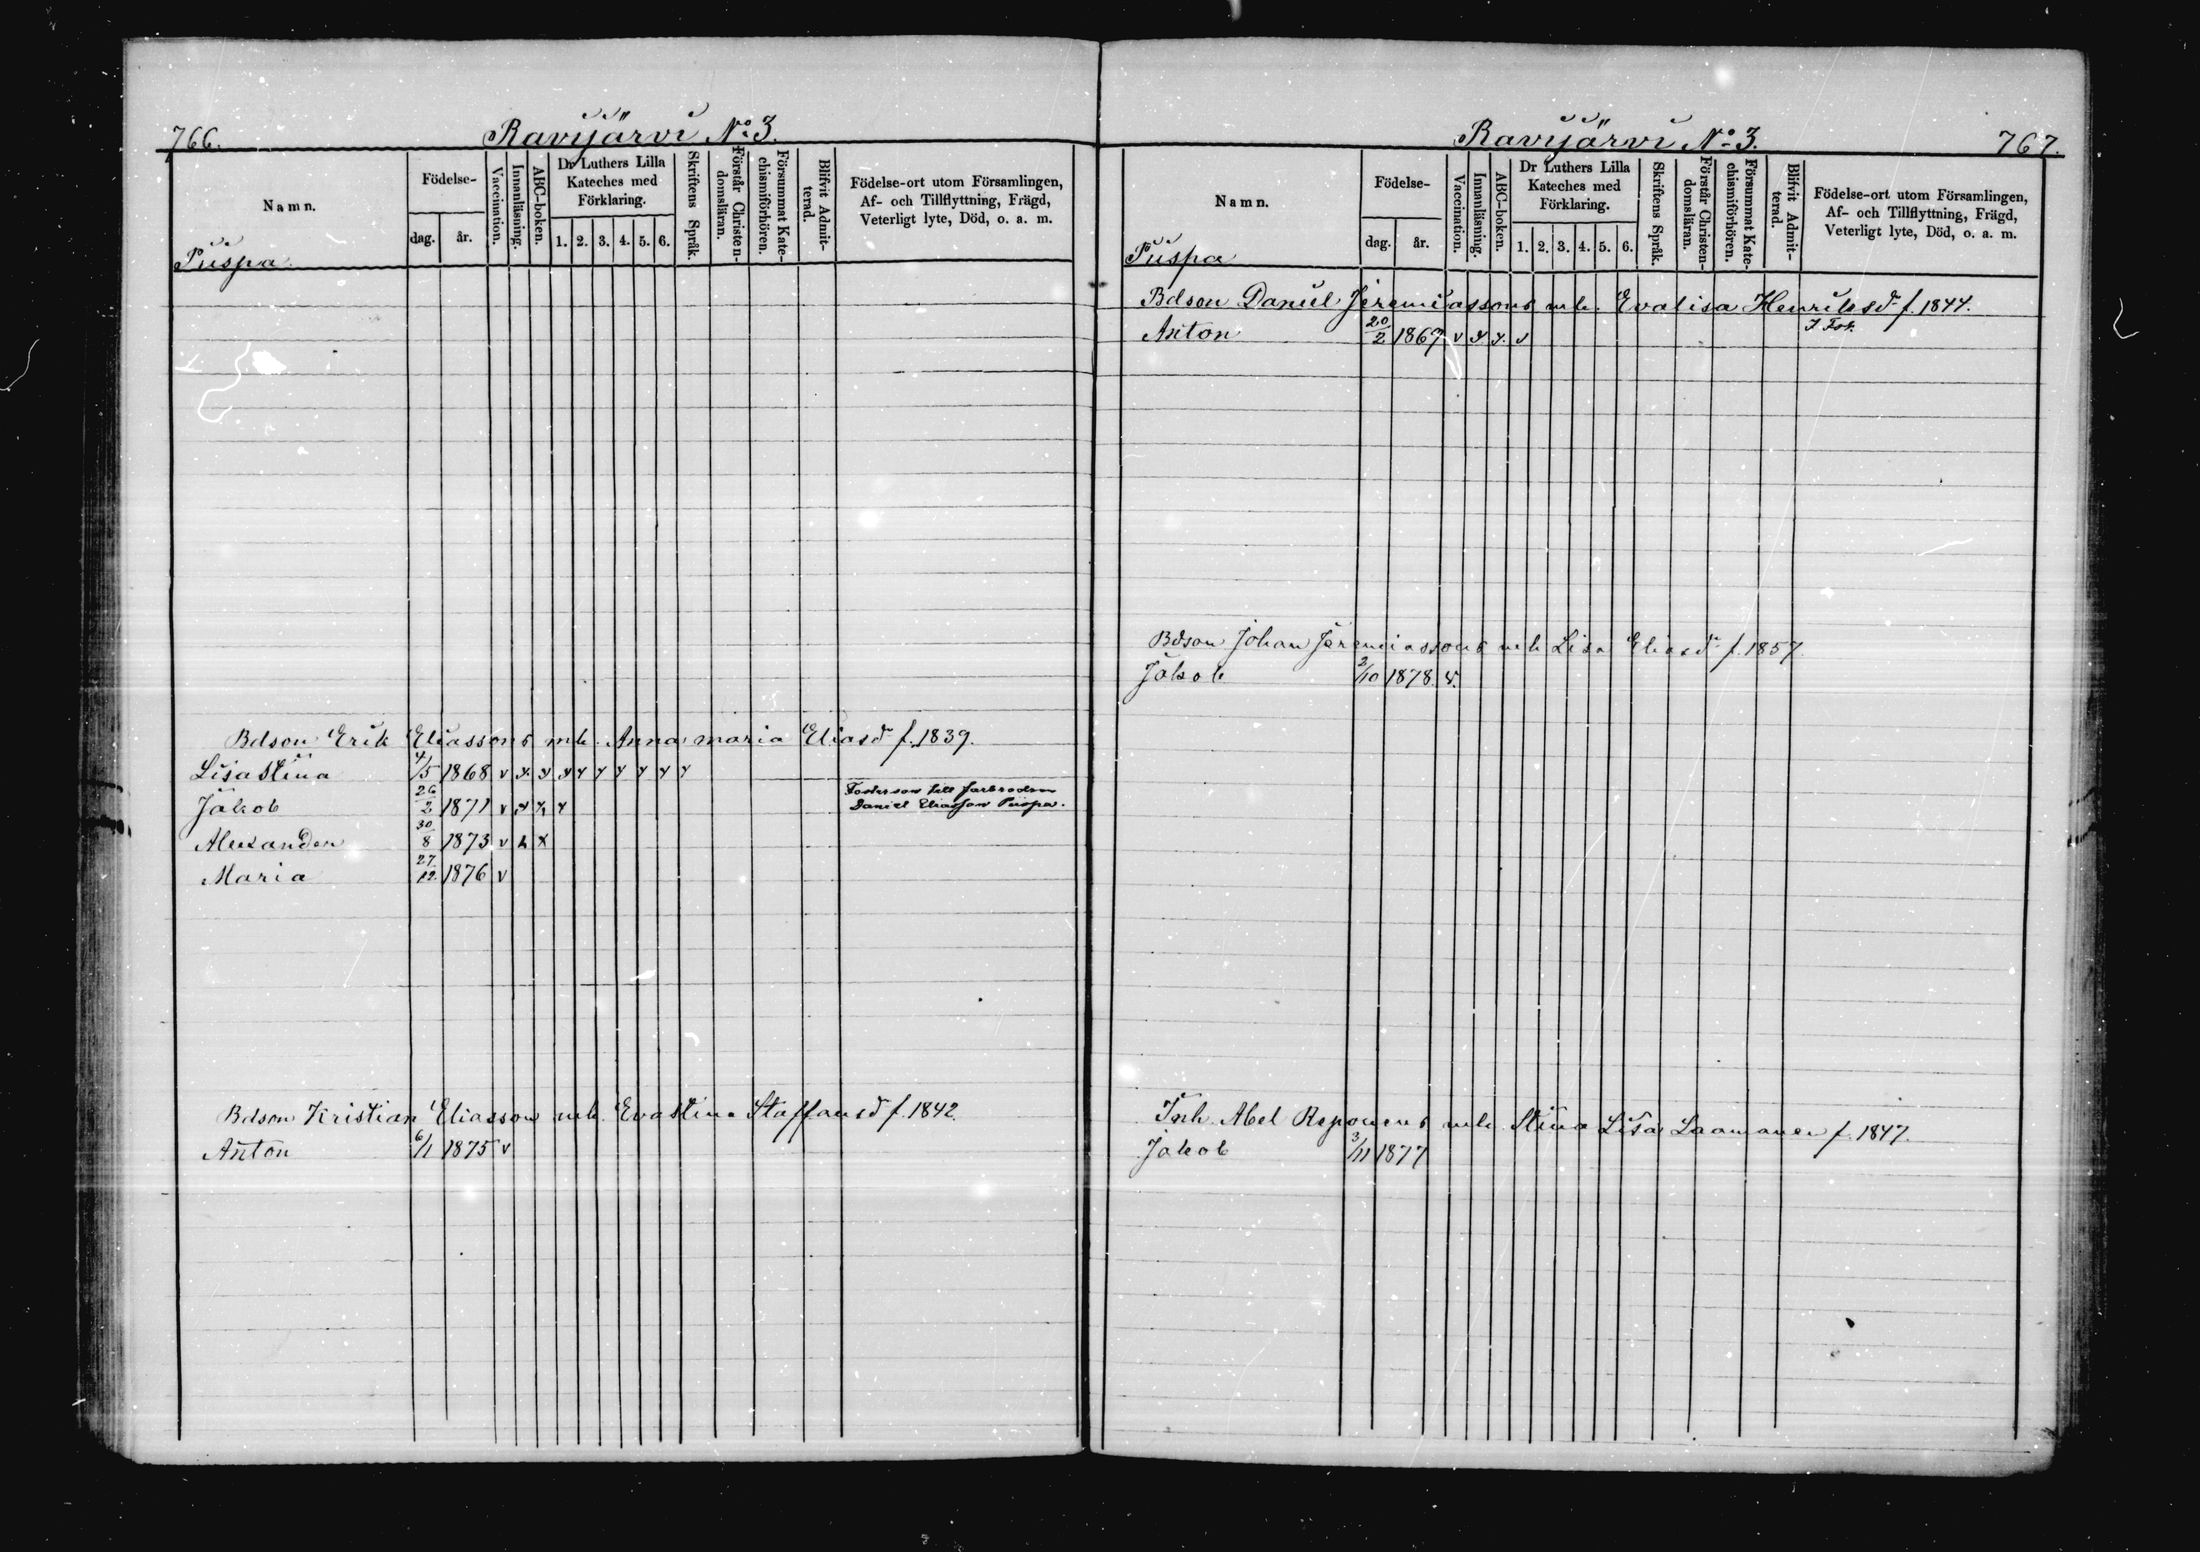 766.
Ravijärvi No 3.
Namn.
Födelse-
dag.
år.
Vaccination.
Innanläsning.
ABC-boken.
Dr Luthers Lilla
Kateches med
Förklaring.
1. 2. 3. 4. 5. 6.
Skriftens Språk.
Förstår Christen-
domsläran.
Försummat Kate-
chismiförhören.
Blifvit Admit-
terad.
Födelse-ort utom Församlingen,
Af- och Tillflyttning, Frägd,
Veterligt lyte, Död, o. a. m.
Piispa
Bdson Erik Eliassons mh. Anna maria Eliasdr f. 1839.
Lisastina 4/5 1868 v
Jakob 26/2 1871 v
Fosterson till farbrodren
Daniel Eliasson Piispa.
Alexander 30/8 1873 v
Maria 27/12 1876 v
Bdson Kristian Eliasson mh. Evastina Staffansd f. 1842.
Anton 6/1 1875 v
Ravijärvi No 3.
767.
Namn.
Födelse-
dag.
år.
Vaccination.
Innanläsning.
ABC-boken.
Dr Luthers Lilla
Kateches med
Förklaring.
1. 2. 3. 4. 5. 6.
Skriftens Språk.
Förstår Christen-
domsläran.
Försummat Kate-
chismiförhören.
Blifvit Admit-
terad.
Födelse-ort utom Församlingen,
Af- och Tillflyttning, Frägd,
Veterligt lyte, Död, o. a. m.
Piispa
Bdson Daniel Jeremiassons mh. Evalisa Henriksdr f. 1844.
Anton 20/2 1867 v
Bdson Johan Jeremiassons mh Lisa Eliasdr f. 1857.
Jakob 2/10 1878 v.
Inh. Abel Reponens mh. Stina Lisa Laamanen f. 1847.
Jakob 3/11 1877